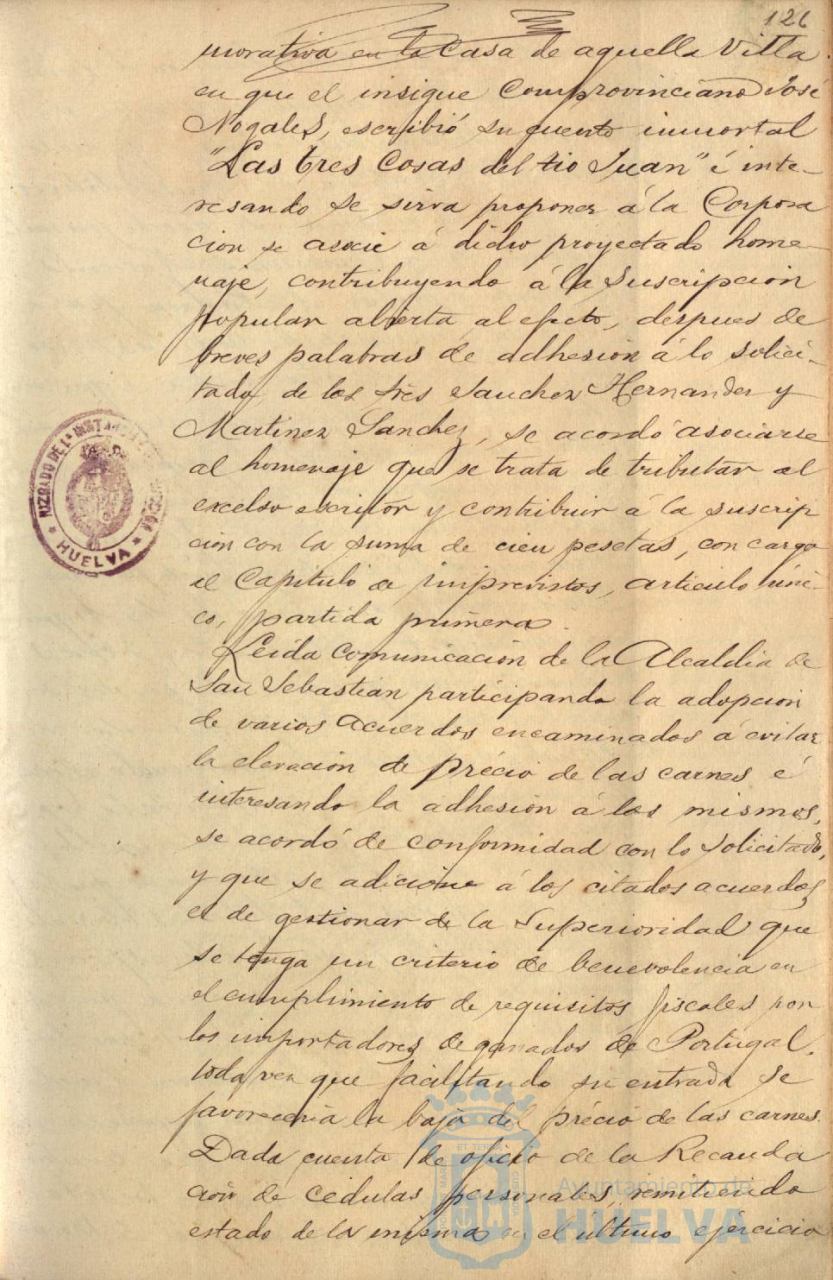 126
morativa en la Casa de aquella Villa
en que el insigne Comprovinciano José
Nogales, escribió su cuento inmortal
"Las tres Cosas del tio Juan" é inte-
resando se sirva proponer á la Corpora
cion se asocie á dicho proyectado home-
naje, contribuyendo á la Suscripcion
popular abierta al efecto, despues de
breves palabras de adhesion á lo solici-
tado, de los Sres Sanchez Hernandez y
Martinez Sanchez, se acordó asociarse
al homenaje que se trata de tributar al
excelso escritor y contribuir á la suscrip
cion con la suma de cien pesetas, con cargo
al Capitulo de Imprevistos, articulo úni-
co, partida primera.
Leida Comunicacion de la Alcaldia de
San Sebastian participando la adopcion
de varios Acuerdos encaminados á evitar
la elevacion de précio de las carnes é
interesando la adhesion á los mismos,
se acordó de conformidad con lo solicitado,
y que se adicione á los citados acuerdos
el de gestionar de la Superioridad que
se tenga un criterio de benevolencia en
el cumplimiento de requisitos fiscales por
los importadores de ganados de Portugal,
toda vez que facilitando su entrada se
favoreceria la baja del précio de las carnes.
Dada cuenta de oficio de la Recauda
ción de Cédulas personales, remitiendo
estado de la misma en el último ejercicio
JUZGADO DE 1ª INSTANCIA
HUELVA
Ayuntamiento de
HUELVA